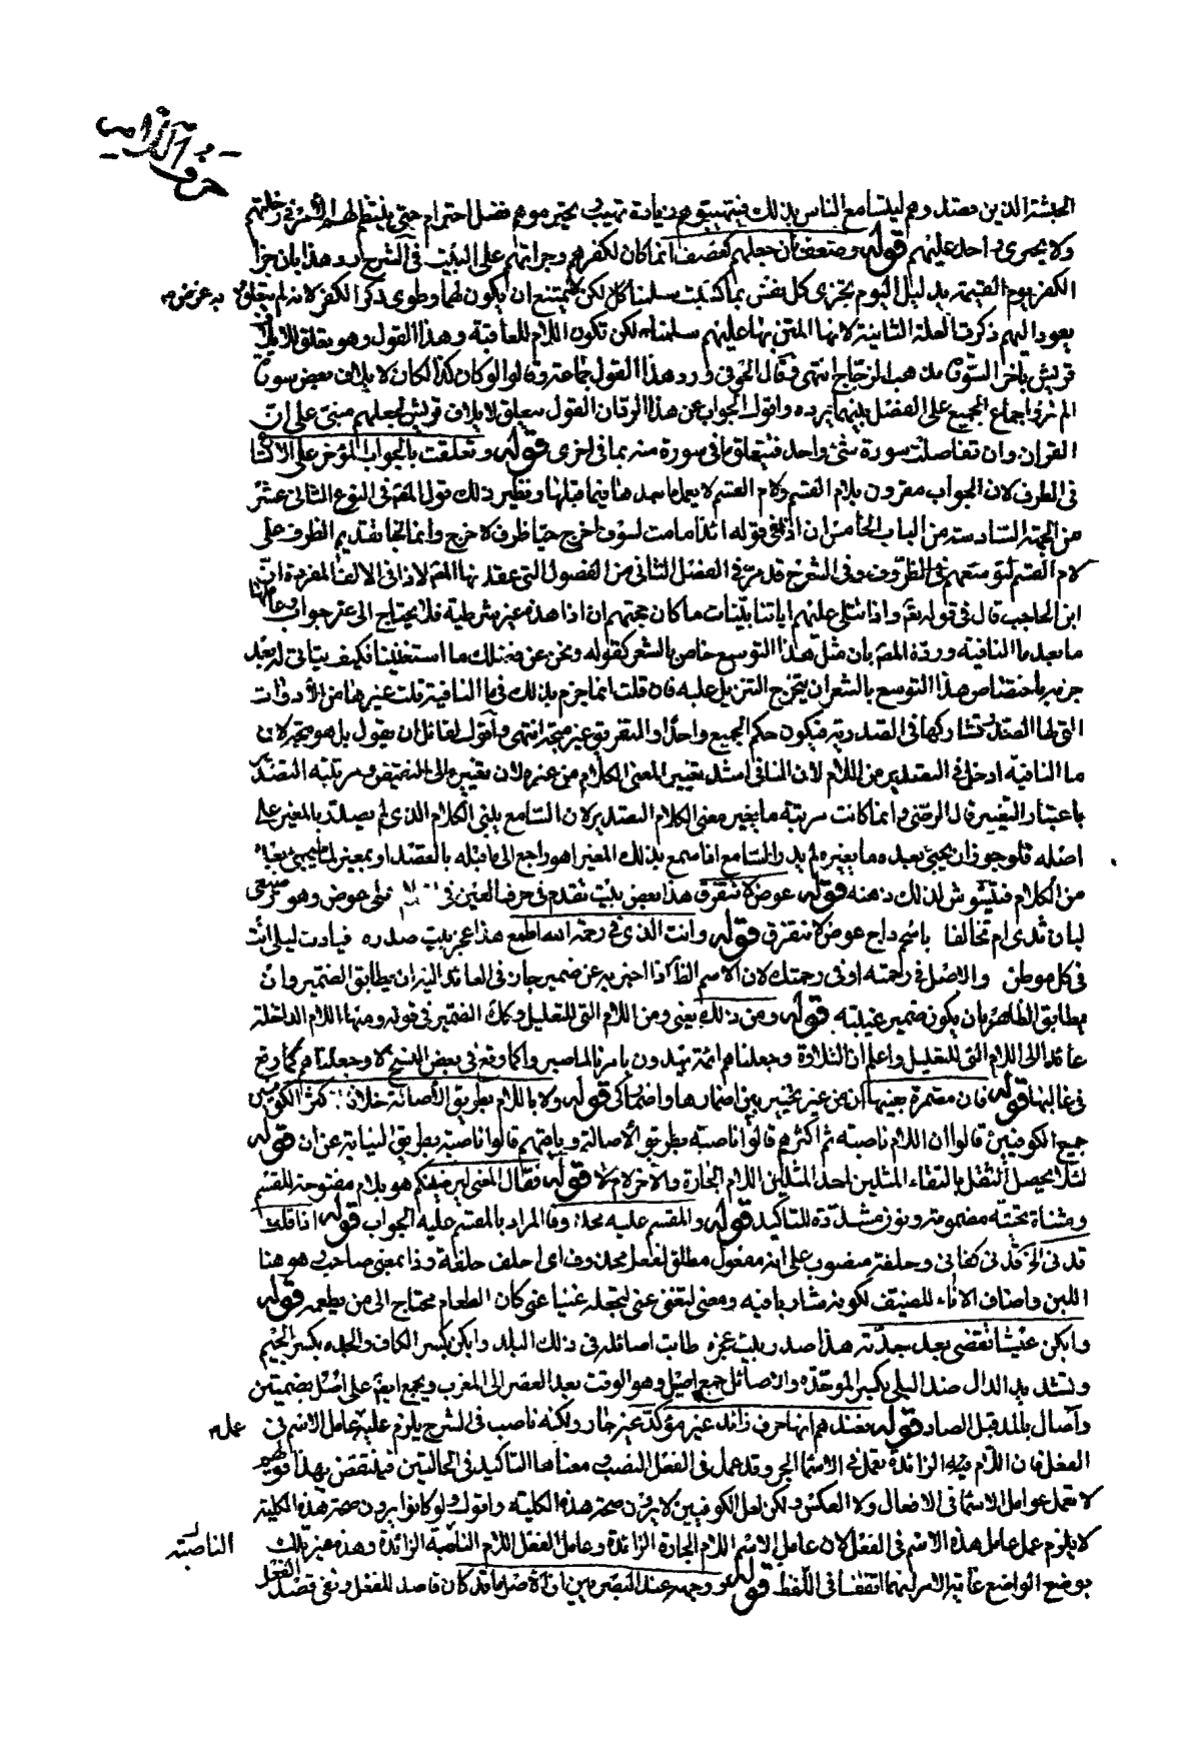 حرف اللام
الحبشة الذين قصدوهم ليتسامع الناس بذلك فيتهيبوهم زيادة تهيب ويحترموهم فضل احترام حتى ينتظم لهم الأمن في رحلتهم
ولا يجترئ احد عليهم قوله وضعف بأن جعلهم كعصف انما كان لكفرهم وجرأتهم على البيت في الشرح رد هذا بان جزا
الكفر يوم القيمة بدليل اليوم تجزى كل نفس بما كسبت سلمنا كل لكن لا يمتنع ان يكون لهما وطوى ذكر الكفر لانه لم يتعلق به غرض
يعود اليهم ذكرت العلة الثانية لانها الممتن بها عليهم سلمنا لكن تكون اللام للعاقبة وهذا القول وهو تعلق لايلاف
قريش بآخر السورة مذهب الزجاج انتهى وقال الحوفي ورد هذا القول جماعة وقالوا لو كان كذا لكان لايلاف بعض سورة
الم تر واجماع الجميع على الفصل بينهما يرده واقول الجواب عن هذا الرد ان القول بتعلق لايلاف قريش بجعلهم مبني على ان
القران وان تفاصلت سورة شئ واحد فيتعلق ما في سورة منه بما في اخرى قوله وتعلقت بالجواب المؤخر على الاتساع
في الظرف لان الجواب مقرون بلام القسم ولام القسم لا يعمل ما بعدها فيما قبلها ونظير ذلك قول المص في النوع الثاني عشر
من الجهة السادسة من الباب الخامس ان اذا في قوله ائذا ما مت لسوف اخرج حيا ظرف لاخرج وانما جاز تقديم الظرف على
لام القسم لتوسعهم في الظروف وفي الشرح قد مر في الفصل الثاني من الفصول التي عقدها المص لاذا في الالف المفردة ان
ابن الحاجب قال في قوله تعالى واذا تتلى عليهم اياتنا بينات ما كان حجتهم ان اذا هذه غير شرطية فلا يحتاج الى جواب وعاملها
ما بعد ما النافية ورده المص بان مثل هذا التوسع خاص بالشعر كقوله ونحن عن فضلك ما استغنينا فكيف يتأتى له بعد
جزمه باختصاص هذا التوسع بالشعر ان يتخرج التنزيل عليه فان قلت انما جزم بذلك في ما النافية قلت غيرها من الأدوات
التي لها الصدر تشاركها في الصدرية فيكون حكم الجميع واحدا والتفريق غير متجه انتهى واقول لقائل ان يقول بل هو متجه لان
ما النافية ادخل في التصدير من اللام لان النافي اشد تغيير المعنى الكلام من غيره لان تغييره الى النقيض ومرتبة التصدر
باعتبار التغيير قال الرضي وانما كانت مرتبة ما يغير معنى الكلام التصدير لان السامع يبني الكلام الذي لم يصدر بالمغير على
اصله فلو جوز ان يجئ بعده ما يغيره لم يدر السامع اذا سمع بذلك المغير اهو راجع الى ما قبله بالتغيير او بمغير لما سيجئ بعده
من الكلام فيتشوش لذلك ذهنه قوله عوض لا نتفرق هذا بعض بيت تقدم في حرف العين في عوض وهو رضيعي
لبان ثدي ام تحالفا باسحم داج عوض لا نتفرق قوله وانت الذي في رحمة الله اطمع هذا عجز بيت صدره فيا رب ليلى انت
في كل موطن والاصل في رحمته او في رحمتك لان الاسم الظاهر اذا اخبر به عن ضمير جاز في العائد اليه ان يطابق الضمير وان
يطابق الظاهر بان يكون ضمير غيبة قوله ومن ذلك يعني ومن اللام التي للتعليل وكذا الضمير في قوله ومنها اللام الداخلة
عائد الى اللام التي للتعليل واعلم ان التلاوة وجعلناهم ائمة يهدون بامرنا لما صبروا كما وقع في بعض النسخ لا وجعلناهم كما وقع
في غالبها قوله فان مضمرة بعينها اي من غير تخيير بين اضمارها واضمار كي قوله ولا باللام بطريق الأصالة خلافا
جميع الكوفيين قالوا ان اللام ناصبة ثم اكثرهم قالوا ناصبة بطريق الأصالة وباقيهم قالوا ناصبة بطريق النيابة عن ان قوله
لئلا يحصل الثقل بالتقاء المثلين احد المثلين اللام الجارة والآخر لام لا قوله فقال المعنى ليرضينكم هو بلام مفتوحة للقسم
ومثناة تحتية مضمومة ونون مشددة للتأكيد قوله والمقسم عليه محذوفا المراد بالمقسم عليه الجواب قوله اذا قلت
قدني الخ قدني كفاني وحلفة منصوب على انه مفعول مطلق لفعل محذوف اي احلف حلفة وذا بمعنى صاحب هو هنا
اللبن واضاف الاناء للضيف لكونه شاربا فيه ومعنى لتغني عني لتجعله غنيا عني كان الطعام محتاج الى من يطعمه قوله
وابكن عيشا تقضى بعد جدته هذا صدر بيت عجزه طابت اصائله في ذلك البلد وابكن بكسر الكاف والجده بكسر الجيم
وتشديد الدال ضد البلى بكسر الموحدة والاصائل جمع اصيل وهو الوقت بعد العصر الى المغرب ويجمع ايضا على اصل بضمتين
وآصال بالمد قبل الصاد قوله بعندهم انها حرف زائد غير مؤكد غير جار ولكنه ناصب في الشرح يلزم عليه عمل عامل الاسم في
الفعل فان اللام فيه الزائدة تعمل في الاسماء الجر وقد عمل في الفعل النصب ومعناها التأكيد في الحالتين فينتقض بهذا قولهم
لا تعمل عوامل الاسماء في الافعال ولا العكس ولكن لعل الكوفيين لا يرون صحة هذه الكلية واقول ولو كانوا يرون صحة هذه الكلية
لا يلزم عمل عامل هذه الاسم في الفعل لان عامل الاسم اللام الجارة الزائدة وعامل الفعل اللام الناصبة الزائدة وهذه غير تلك الناصبة
بوضع الواضع غاية الامر انهما اتفقنا في اللفظ قوله ووجهه عند البصريين ان الاصل ما قد كان قاصدا للفعل ونفي قصد الفعل